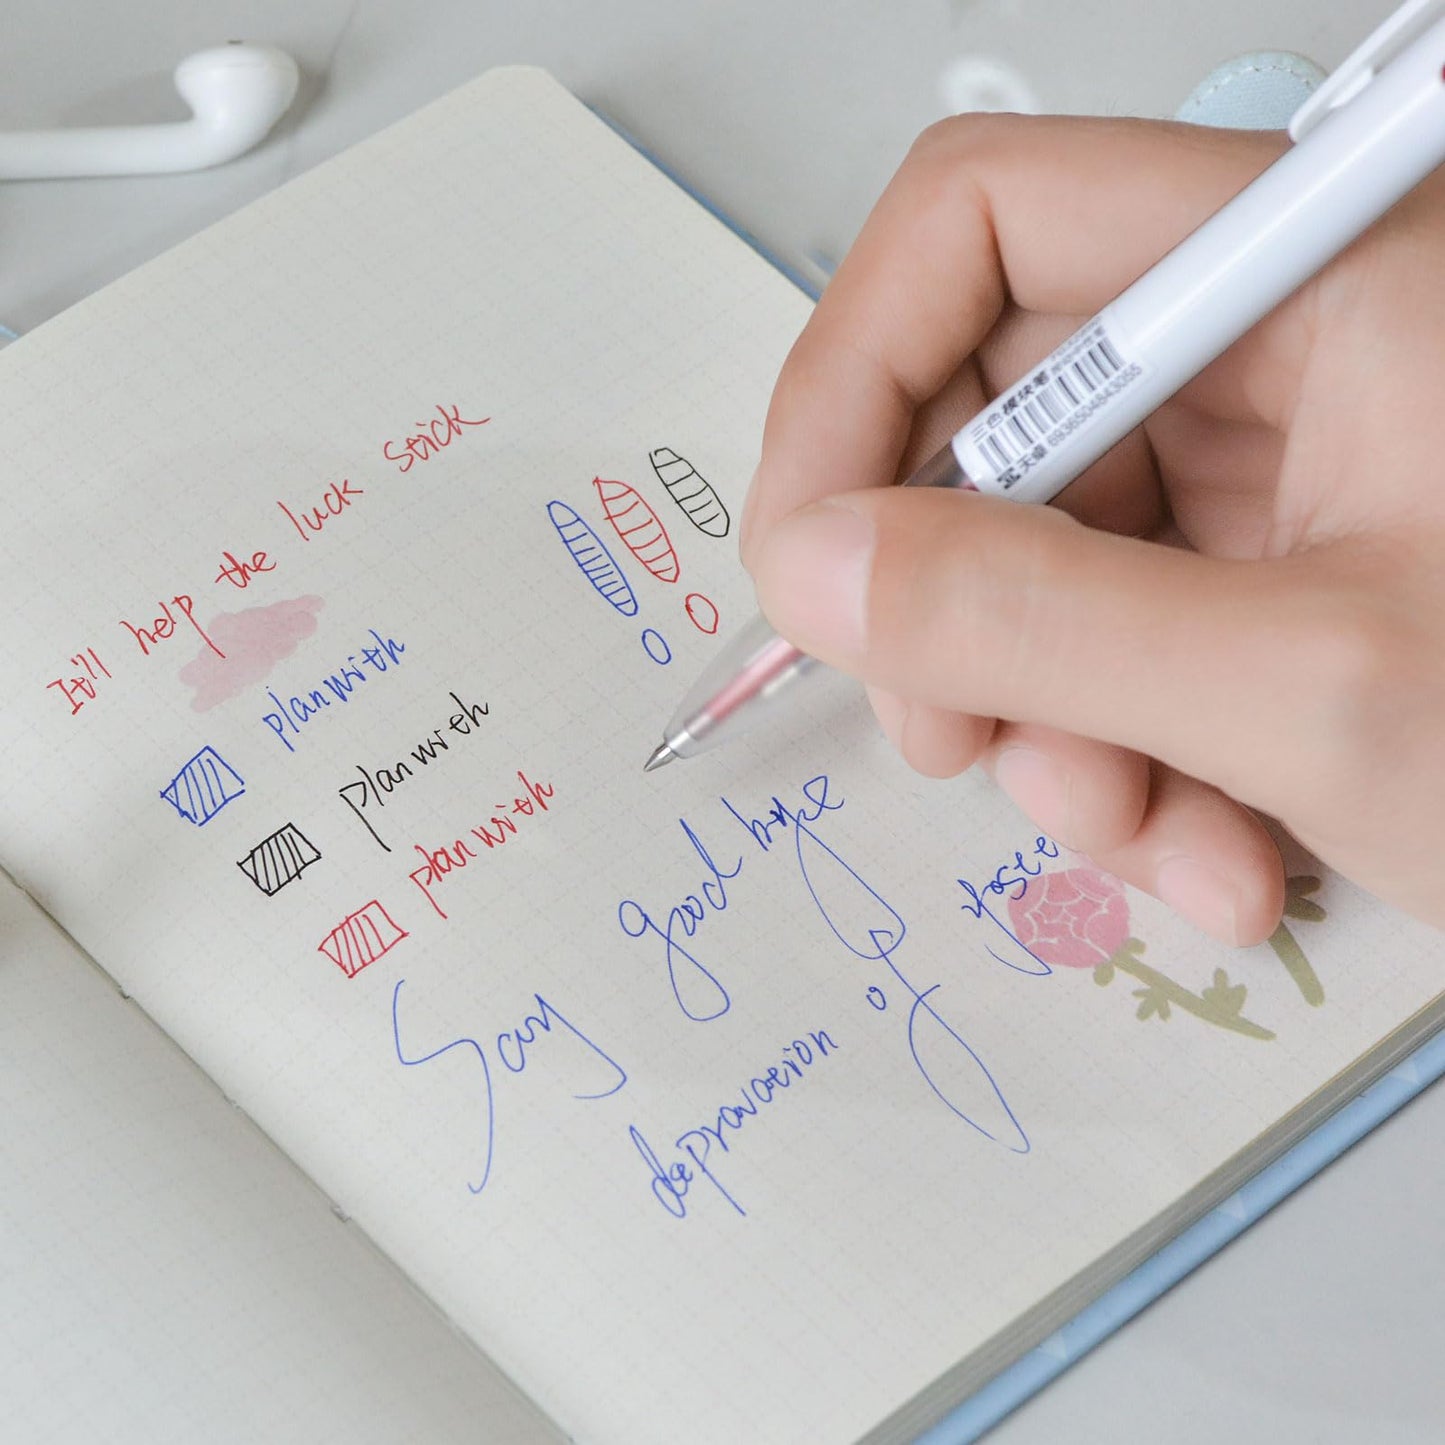 It'll help the luck stick
planwith
planwith
planwith
Say good bye
depravation of
三色模块笔
天卓 6936504843055